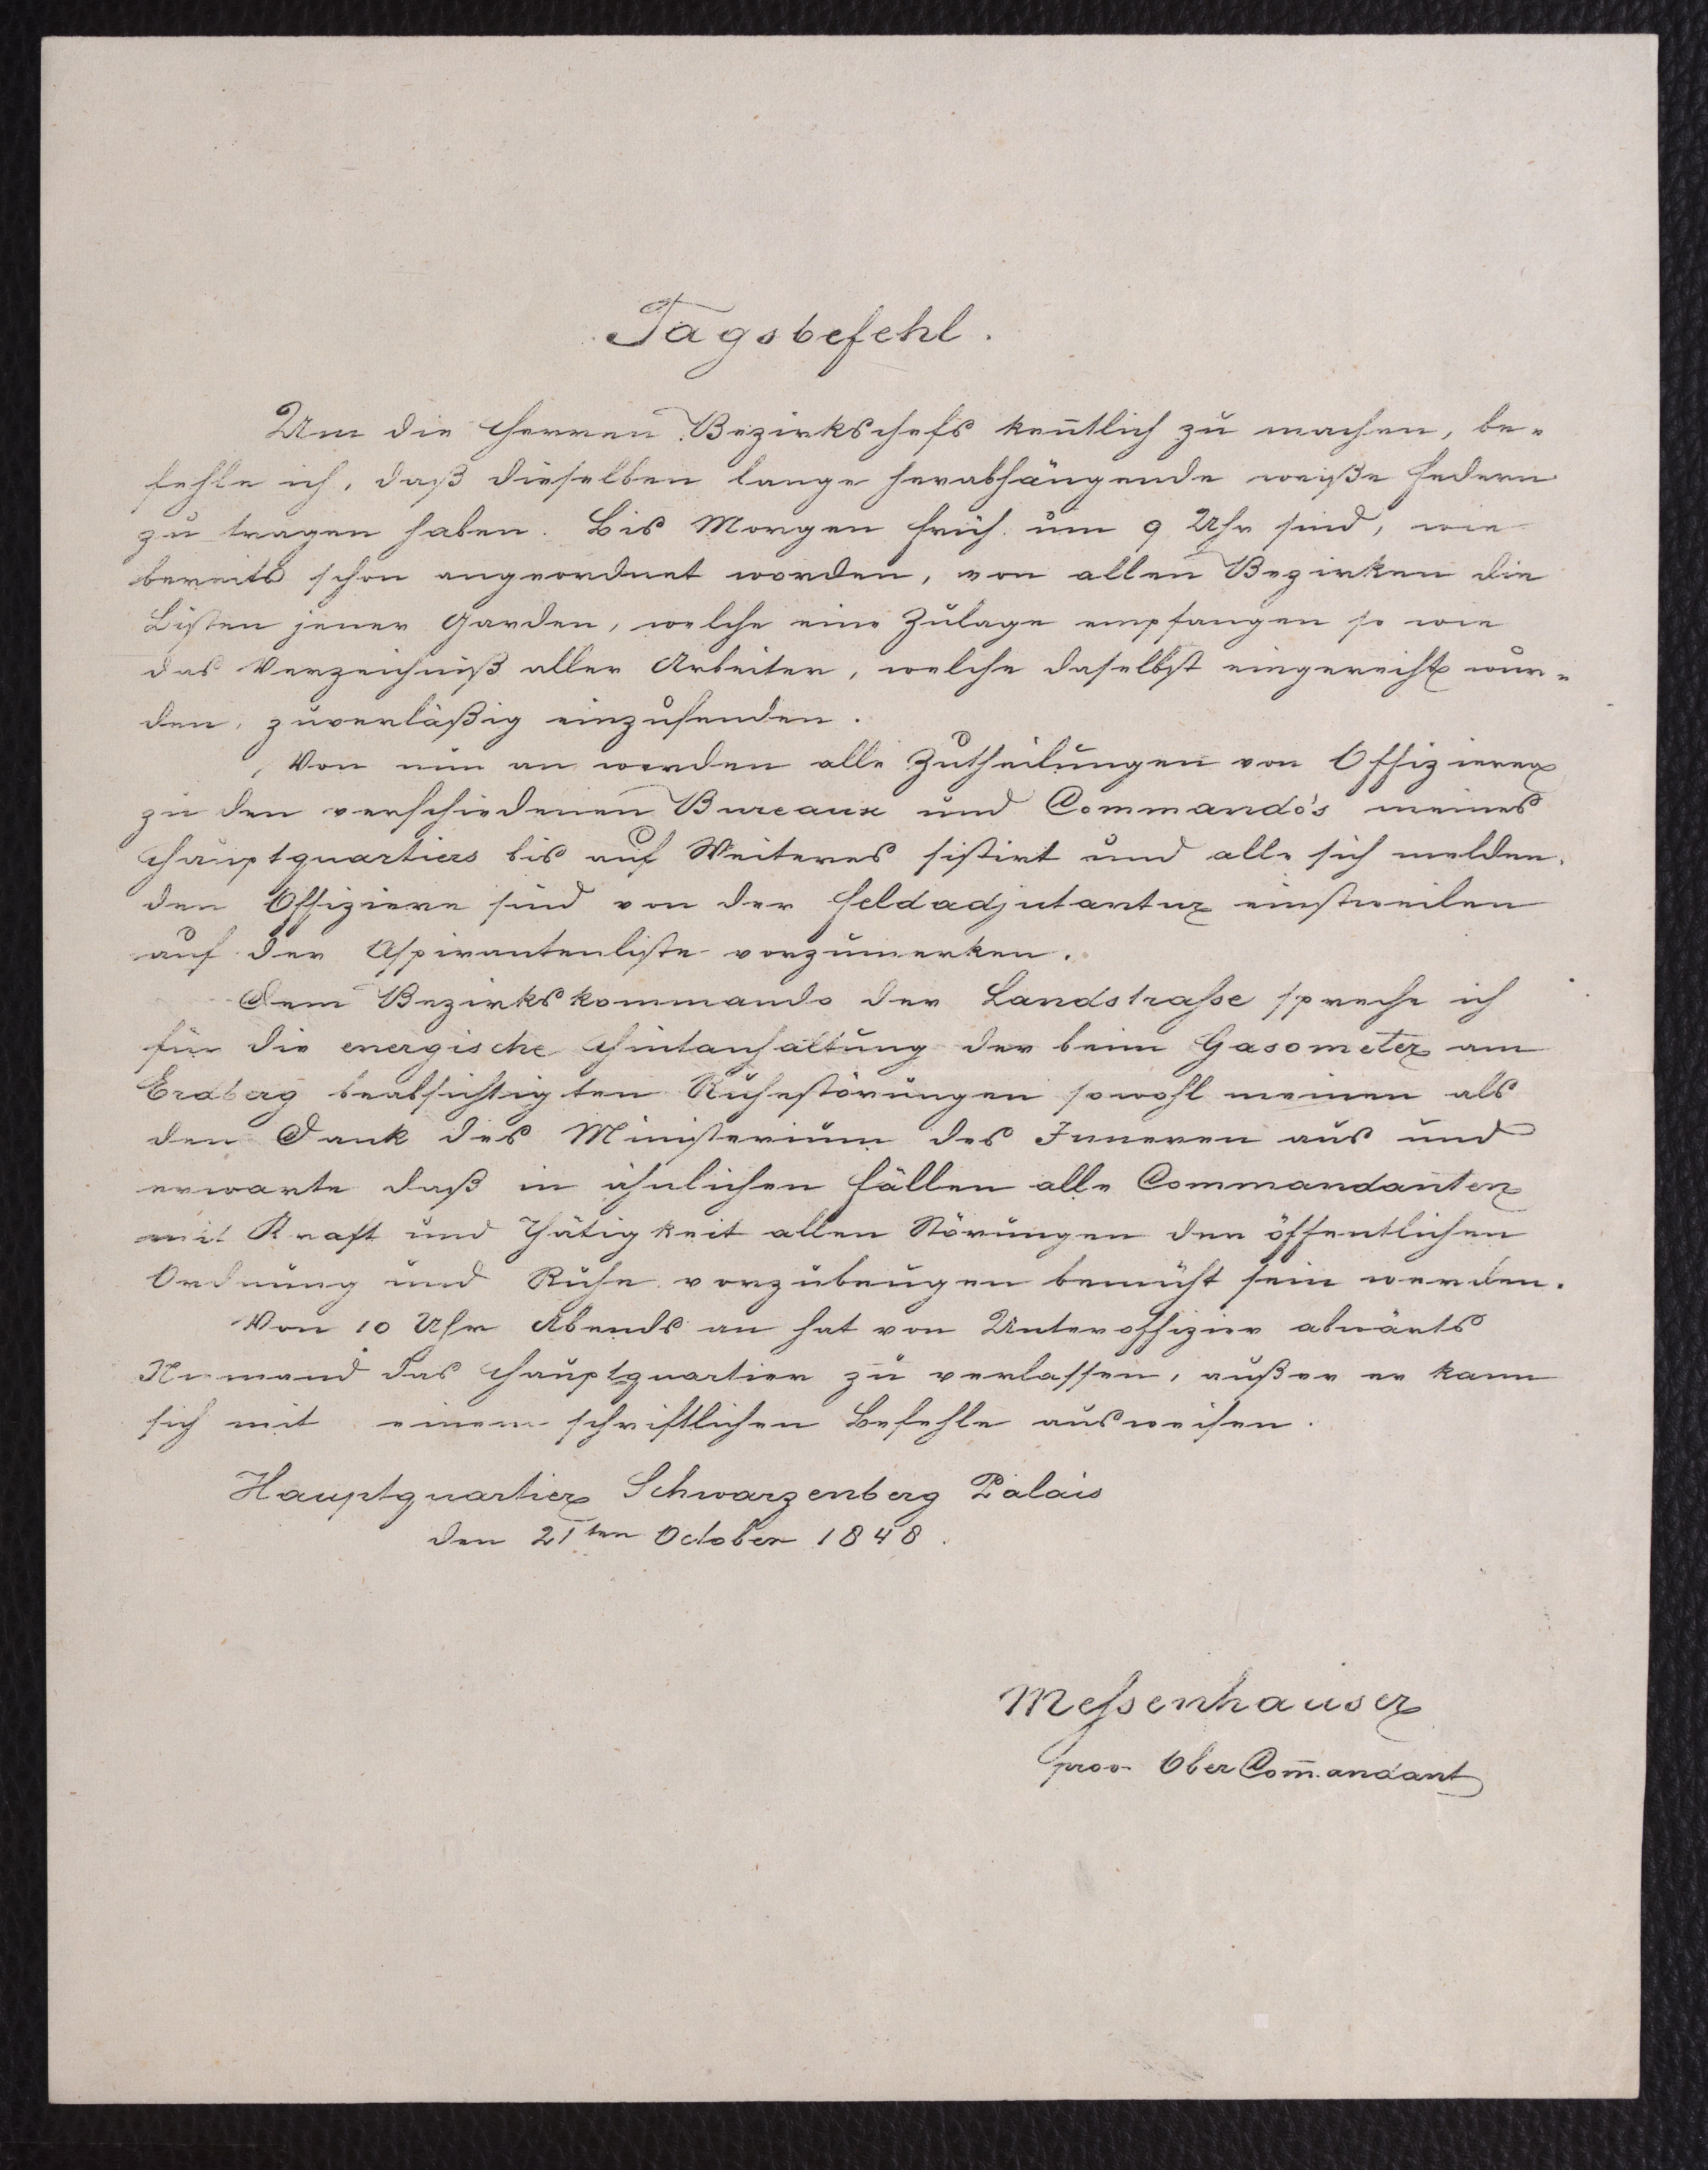 Tagsbefehl.
Um die Herren Bezirkschefs keñtlich zu machen, be-
fehle ich, daß dieselben lange herabhängende weiße Federn
zu tragen haben. Bis Morgen früh um 9 Uhr sind, wie
bereits schon angeordnet worden, von allen Bezirken die
Listen jener Garden, welche eine Zulage empfangen so wie
das Verzeichniß aller Arbeiter, welche daselbst eingereiht wur-
den, zuverläßig einzusenden.
Von nun an werden alle Zutheilungen von Offizieren
zu den verschiedenen Bureaux und Commando's meines
Hauptquartiers bis auf Weiteres sistirt und alle sich melden-
den Offiziere sind von der Feldadjutantur einstweilen
auf der Aspirantenliste vorzumerken.
Dem Bezirkskommando der Landstrasse spreche ich
für die energische Hintanhaltung der beim Gasometer am
Erdberg beabsichtigten Ruhestörungen sowohl meinen als
den Dank des Ministerium des Inneren aus und
erwarte daß in ähnlichen Fällen alle Commandanten
mit Kraft und Thätigkeit allen Störungen der öffentlichen
Ordnung und Ruhe vorzubeugen bemüht sein werden.
Von 10 Uhr Abends an hat von Unteroffizier abwärts
Niemand das Hauptquartier zu verlassen, außer er kann
sich mit einem schriftlichen Befehle ausweisen.
Hauptquartier Schwarzenberg Palais
den 21ten October 1848.
Messenhauser
prov. Ober Com̄andant